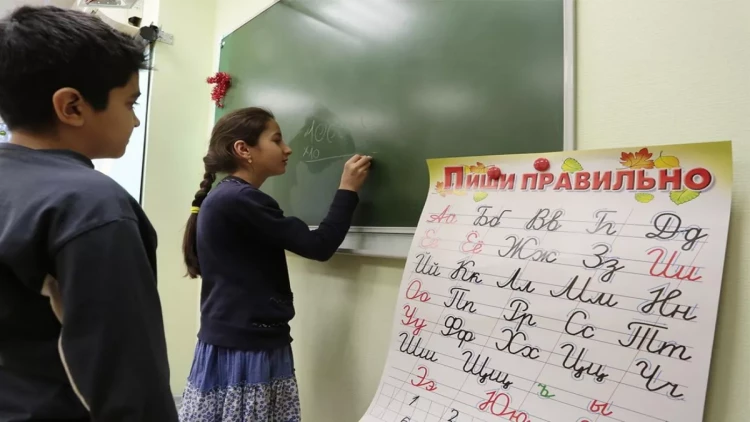 1000
10
Пиши правильно
Аа Бб Вв Гг Дд
Ее Ёё Жж Зз Ии
Йй Кк Лл Мм Нн
Оо Пп Рр Сс Тт
Уу Фф Хх Цц Чч
Шш Щщ ъ ы
Ээ Юю
1 2